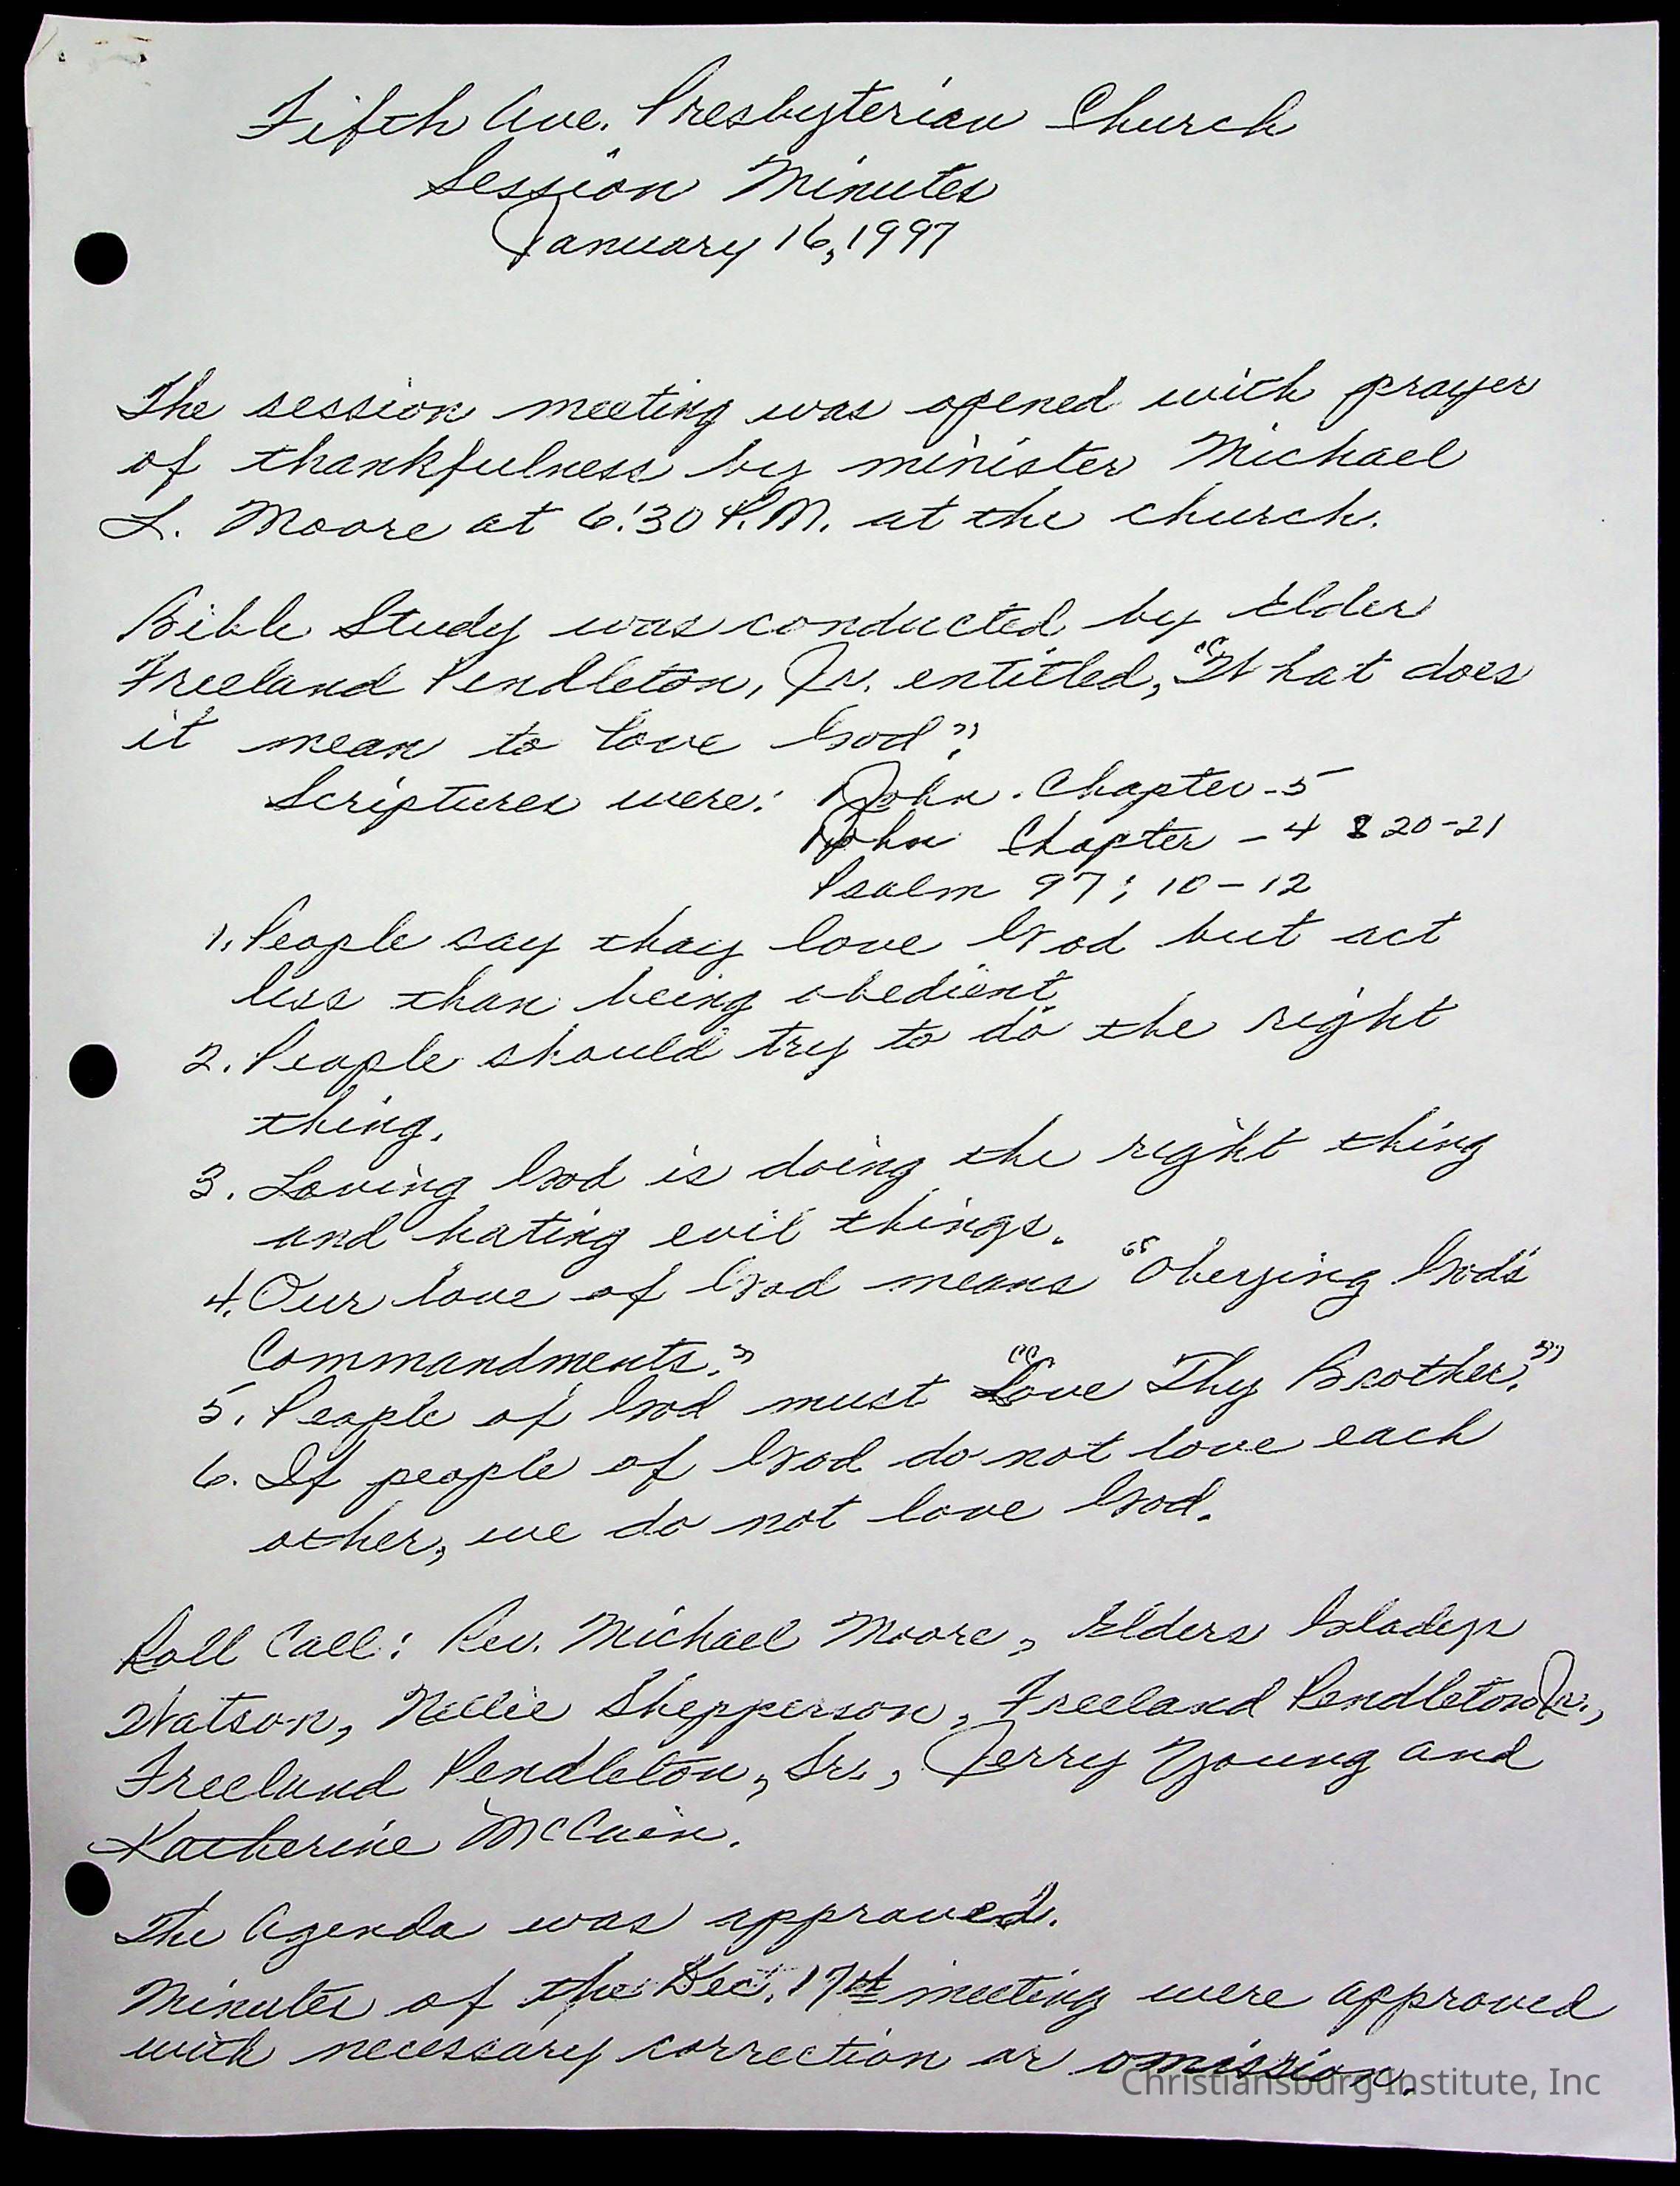 Fifth Ave. Presbyterian Church
Session Minutes
January 16, 1997
The session meeting was opened with prayer
of thankfulness by minister Michael
L. Moore at 6:30 P.M. at the church.
Bible Study was conducted by Elder
Freeland Pendleton, Jr. entitled, "What does
it mean to love God"?
Scriptures were: John. Chapter - 5
John Chapter - 4 & 20-21
Psalm 97; 10-12
1. People say thay love God but act
less than being obedient.
2. People should try to do the right
thing.
3. Loving God is doing the right thing
and hating evil things.
4. Our love of God means "Obeying God's
Commandments."
5. People of God must "Love Thy Brother."
6. If people of God do not love each
other, we do not love God.
Roll Call: Rev. Michael Moore, Elders Gladys
Watson, Nellie Shepperson, Freeland Pendleton Jr.,
Freeland Pendleton, Sr., Jerry Young and
Katherine McCain.
The Agenda was approved.
Minutes of the Dec. 17th meeting were approved
with necessary correction or omission.
Christiansburg Institute, Inc